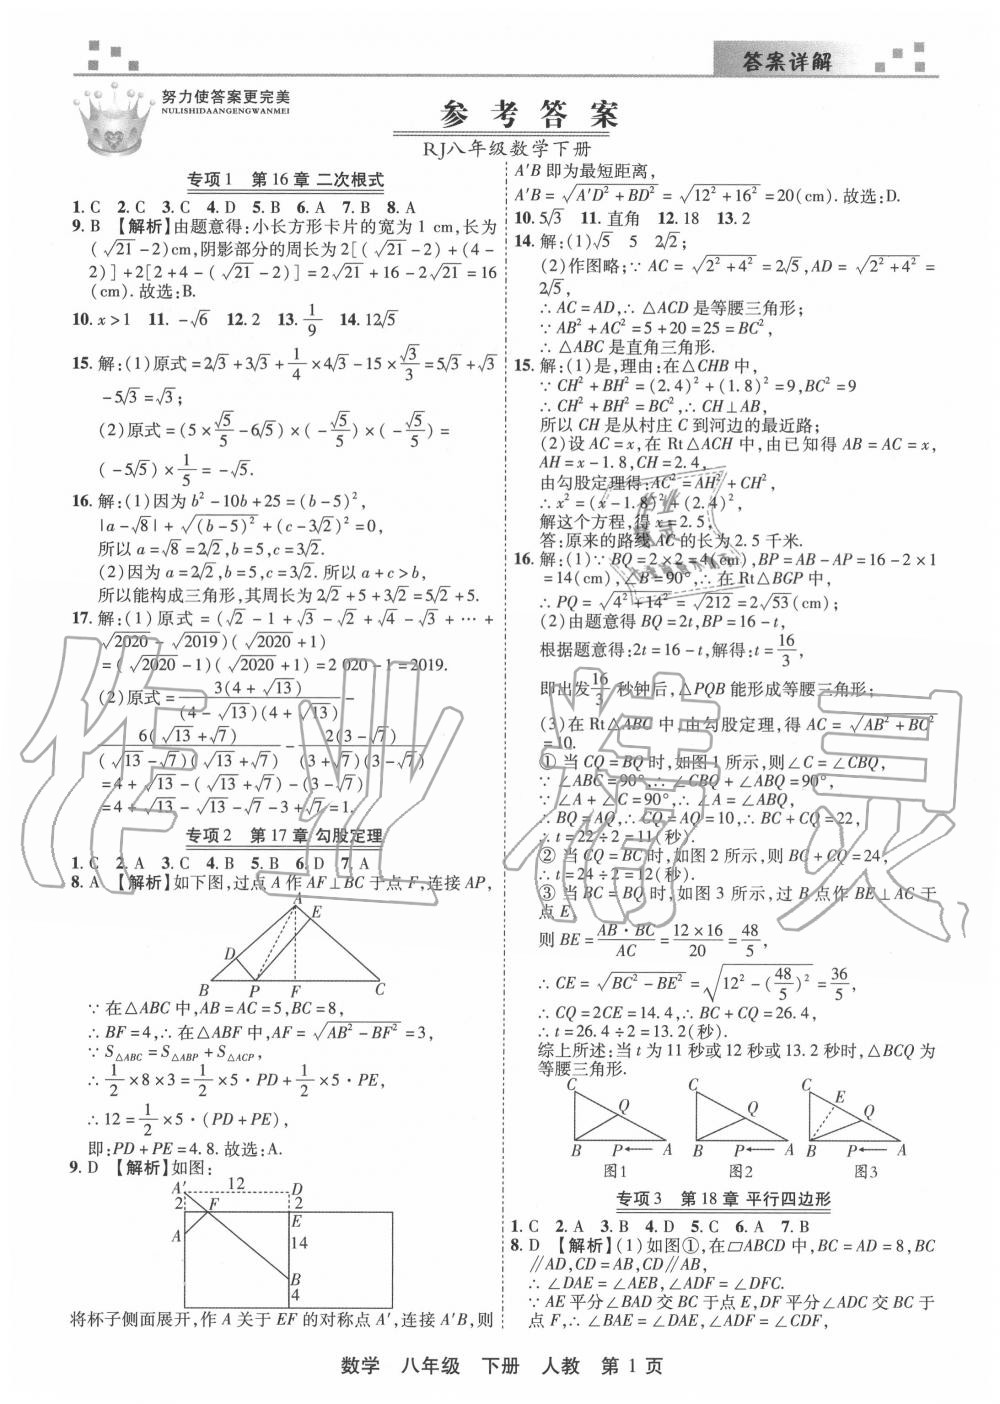 答案详解
努力使答案更完美
NULISHIDAANGENGWANMEI
参考答案
RJ八年级数学下册
专项1 第16章 二次根式
1. C 2. C 3. C 4. D 5. B 6. A 7. B 8. A
9. B 【解析】由题意得:小长方形卡片的宽为1 cm,长为
(√21-2)cm,阴影部分的周长为2[(√21-2)+(4-
2)]+2[2+4-(√21-2)]=2√21+16-2√21=16
(cm).故选:B.
10. x>1 11. -√6 12. 2 13. 1/9 14. 12√5
15. 解:(1)原式=2√3+3√3+1/4×4√3-15×√3/3=5√3+√3
-5√3=√3;
(2)原式=(5×√5/5-6√5)×(-√5/5)×(-√5/5)=
(-5√5)×1/5=-√5.
16. 解:(1)因为b²-10b+25=(b-5)²,
|a-√8|+√(b-5)²+(c-3√2)²=0,
所以a=√8=2√2,b=5,c=3√2.
(2)因为a=2√2,b=5,c=3√2.所以a+c>b,
所以能构成三角形,其周长为2√2+5+3√2=5√2+5.
17. 解:(1)原式=(√2-1+√3-√2+√4-√3+…+
√2020-√2019)(√2020+1)
=(√2020-1)(√2020+1)=2 020-1=2019.
(2)原式=3(4+√13)/(4-√13)(4+√13)-
6(√13+√7)/(√13-√7)(√13+√7)-2(3-√7)/(3+√7)(3-√7)
=4+√13-(√13+√7)-(3-√7)
=4+√13-√13-√7-3+√7=1.
专项2 第17章 勾股定理
1. C 2. A 3. C 4. B 5. B 6. D 7. A
8. A 【解析】如下图,过点A作AF⊥BC于点F,连接AP,
A
E
D
B P F C
∵在△ABC中,AB=AC=5,BC=8,
∴BF=4,∴在△ABF中,AF=√AB²-BF²=3,
∵S△ABC=S△ABP+S△ACP,
∴1/2×8×3=1/2×5·PD+1/2×5·PE,
∴12=1/2×5·(PD+PE),
即:PD+PE=4.8.故选:A.
9. D 【解析】如图:
A′ 12 D
2 F 2
E
A 14
B
4
将杯子侧面展开,作A关于EF的对称点A′,连接A′B,则
A′B即为最短距离,
A′B=√A′D²+BD²=√12²+16²=20(cm).故选:D.
10. 5√3 11. 直角 12. 18 13. 2
14. 解:(1)√5 5 2√2;
(2)作图略;∵AC=√2²+4²=2√5,AD=√2²+4²=
2√5,
∴AC=AD,∴△ACD是等腰三角形;
∵AB²+AC²=5+20=25=BC²,
∴△ABC是直角三角形.
15. 解:(1)是,理由:在△CHB中,
∵CH²+BH²=(2.4)²+(1.8)²=9,BC²=9
∴CH²+BH²=BC²,∴CH⊥AB,
所以CH是从村庄C到河边的最近路;
(2)设AC=x,在Rt△ACH中,由已知得AB=AC=x,
AH=x-1.8,CH=2.4,
由勾股定理得:AC²=AH²+CH²,
∴x²=(x-1.8)²+(2.4)²,
解这个方程,得x=2.5,
答:原来的路线AC的长为2.5千米.
16. 解:(1)∵BQ=2×2=4(cm),BP=AB-AP=16-2×1
=14(cm),∠B=90°,∴在Rt△BGP中,
∴PQ=√4²+14²=√212=2√53(cm);
(2)由题意得BQ=2t,BP=16-t,
根据题意得:2t=16-t,解得:t=16/3,
即出发16/3秒钟后,△PQB能形成等腰三角形;
(3)在Rt△ABC中,由勾股定理,得AC=√AB²+BC²
=10.
①当CQ=BQ时,如图1所示,则∠C=∠CBQ,
∵∠ABC=90°,∴∠CBQ+∠ABQ=90°,
∴∠A+∠C=90°,∴∠A=∠ABQ,
∴BQ=AQ,∴CQ=AQ=10,∴BC+CQ=22,
∴t=22÷2=11(秒).
②当CQ=BC时,如图2所示,则BC+CQ=24,
∴t=24÷2=12(秒).
③当BC=BQ时,如图3所示,过B点作BE⊥AC于
点E
则BE=AB·BC/AC=12×16/20=48/5,
∴CE=√BC²-BE²=√12²-(48/5)²=36/5,
∴CQ=2CE=14.4,∴BC+CQ=26.4,
∴t=26.4÷2=13.2(秒).
综上所述:当t为11秒或12秒或13.2秒时,△BCQ为
等腰三角形.
C Q B P A 图1
C Q B P A 图2
C E Q B P A 图3
专项3 第18章 平行四边形
1. C 2. A 3. B 4. D 5. C 6. A 7. B
8. D 【解析】(1)如图①,在▱ABCD中,BC=AD=8,BC
∥AD,CD=AB,CD∥AB,
∴∠DAE=∠AEB,∠ADF=∠DFC.
∵AE平分∠BAD交BC于点E,DF平分∠ADC交BC于
点F,∴∠BAE=∠DAE,∠ADF=∠CDF,
数学 八年级 下册 人教 第1页
作业精灵